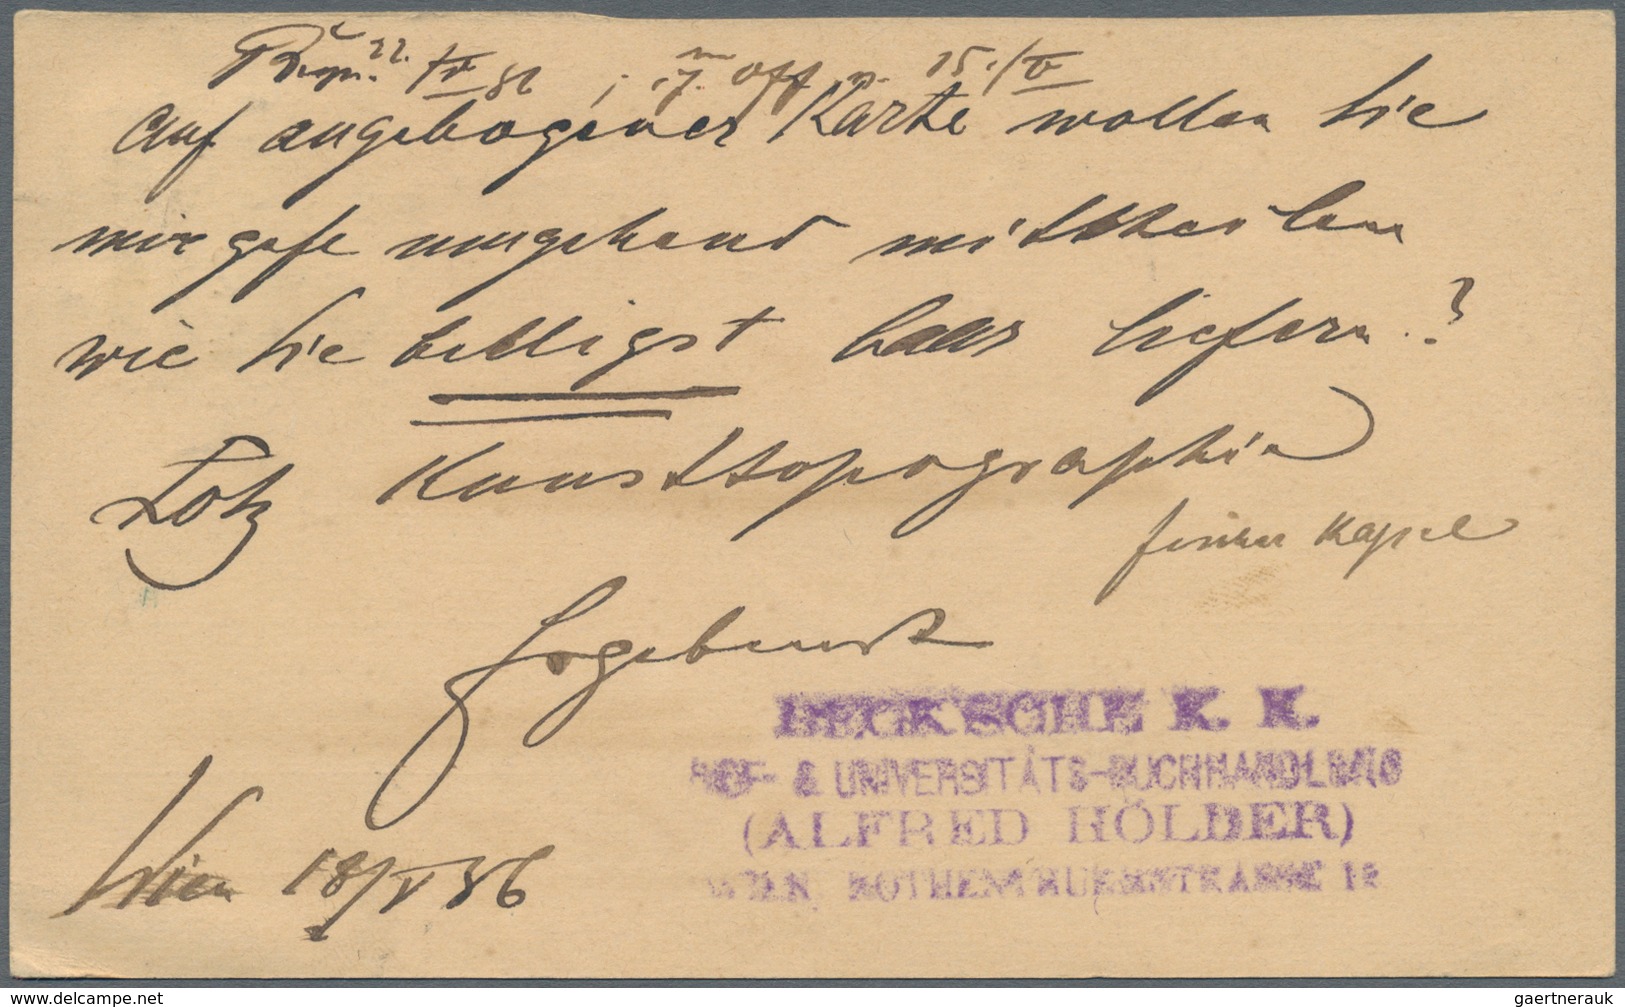 22. IV 86 ; off v. 15./V
Auf angebogener Karte wollen Sie
mir gefl umgehend mittheilen
wie Sie billigst baar liefern?
Lotz Kunsttopographie
Kapsel
Ergebenst
BECK'SCHE K. K.
HOF- & UNIVERSITÄTS-BUCHHANDLUNG
(ALFRED HÖLDER)
WIEN, ROTHENTHURMSTRASSE 15
Wien 18/V 86
www.delcampe.net
gaertnerauk